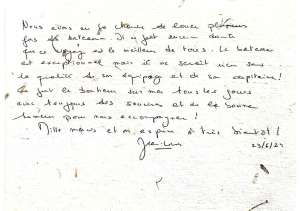 Nous avons eu la chance de louer plusieurs
fois des bateaux. Il n'y a aucun doute
que ce voyage est le meilleur de tous. Le bateau
est exceptionnel mais il ne serait rien sans
la qualité de son équipage et de son capitaine!
Ce fut le bonheur sur mer tous les jours
avec toujours des sourires et de la bonne
humeur pour nous accompagner!
Mille mercis et on espère à très bientôt!
Jean-Luc